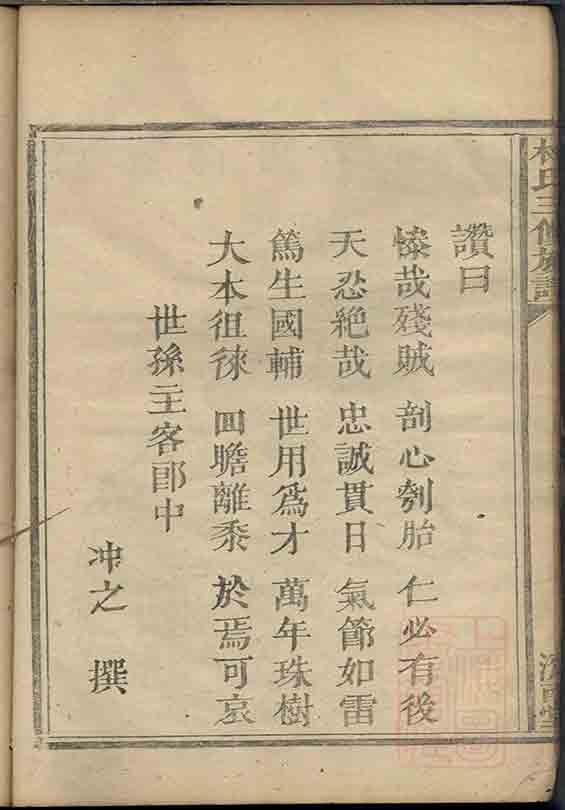 林氏三修族譜
讚曰
慘哉殘賊 剖心刳胎 仁必有後
天忍絕哉 忠誠貫日 氣節如雷
篤生國輔 世用爲才 萬年珠樹
大本徂徠 回瞻離黍 於焉可哀
世孫主客郎中
冲之 撰